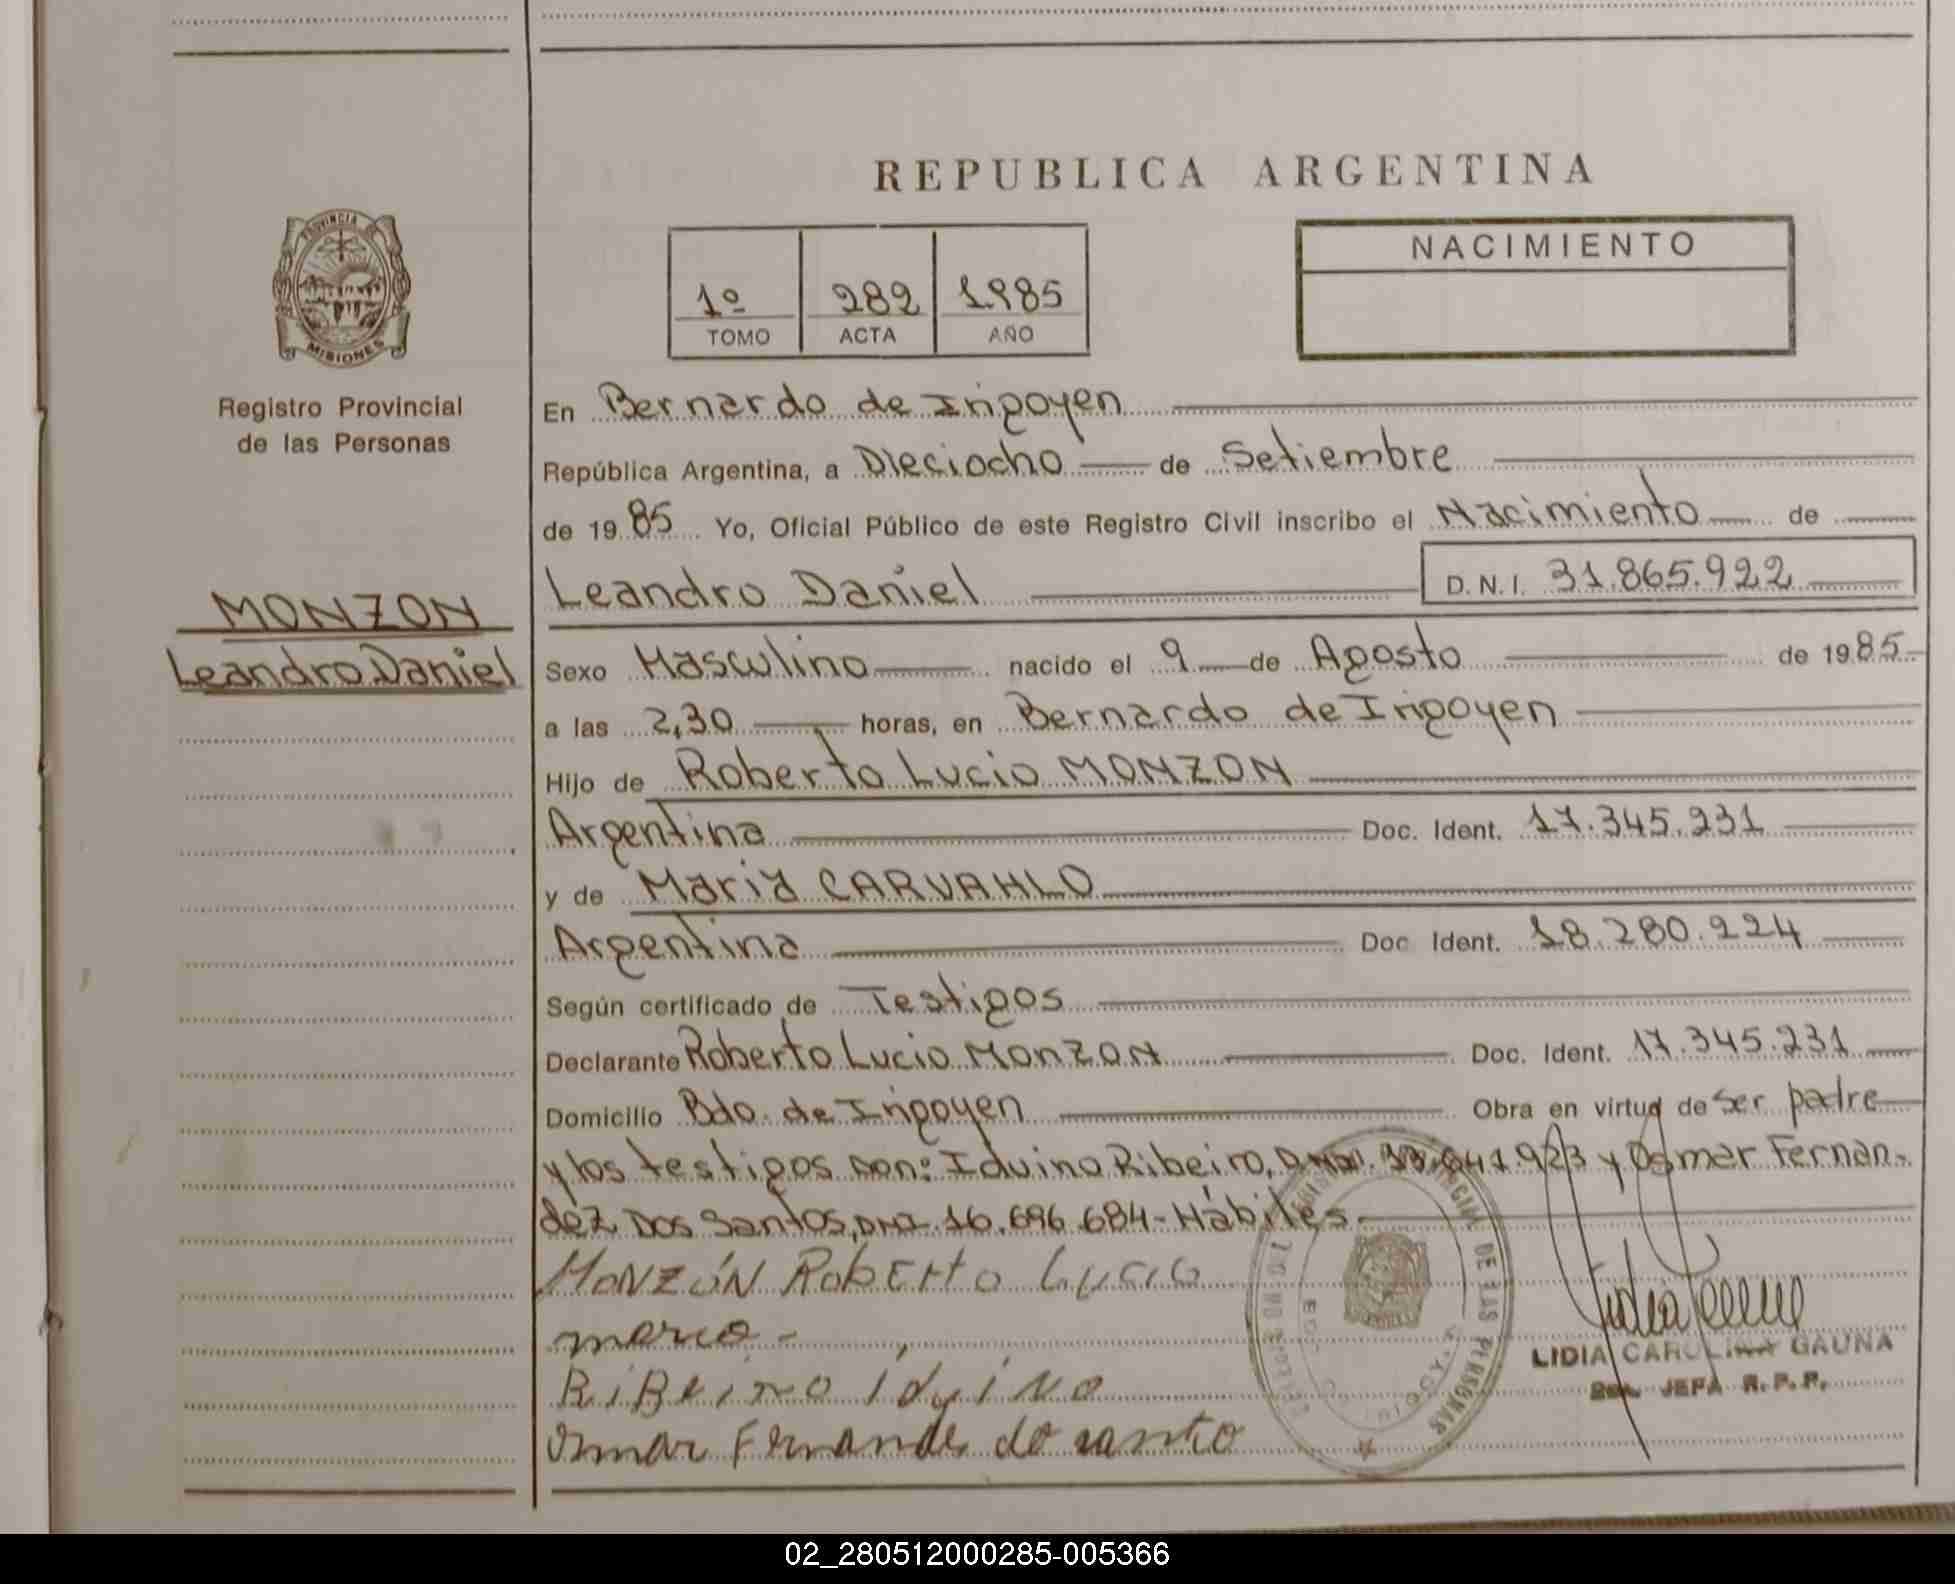 REPUBLICA ARGENTINA
PROVINCIA DE
MISIONES
Registro Provincial
de las Personas
MONZON
Leandro Daniel
1º 282 1985
TOMO ACTA AÑO
NACIMIENTO
En Bernardo de Irigoyen
República Argentina, a Dieciocho de Setiembre
de 1985 Yo, Oficial Público de este Registro Civil inscribo el Nacimiento de
Leandro Daniel D.N.I. 31.865.922
Sexo Masculino nacido el 9 de Agosto de 1985
a las 2,30 horas, en Bernardo de Irigoyen
Hijo de Roberto Lucio MONZON
Argentina Doc. Ident. 17.345.231
y de Maria CARVAHLO
Argentina Doc Ident. 18.280.224
Según certificado de Testigos
Declarante Roberto Lucio MONZON Doc. Ident. 17.345.231
Domicilio Bdo. de Irigoyen Obra en virtud de ser padre
y los testigos son: Iduino Ribeiro, y Osmar Fernan-
dez Dos Santos, DNI 16.696.684 - Hábiles
MONZÓN Roberto Lucio
REGISTRO PROVINCIAL DE LAS PERSONAS
LIDIA CAROLINA GAUNA
JEFA R.P.P.
Ribeiro Iduino
Osmar Fernandes do santo
02_280512000285-005366